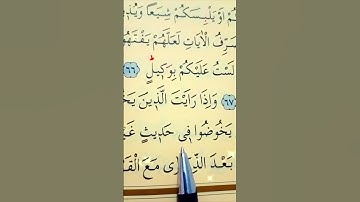 كُمْ اَوْ يَلْبِسَكُمْ شِيَعًا وَيُذ۪
نُصَرِّفُ الْاٰيَاتِ لَعَلَّهُمْ يَفْقَهُ
لَسْتُ عَلَيْكُمْ بِوَك۪يلٍ ﴿٦٦﴾
﴿٦٧﴾ وَاِذَا رَاَيْتَ الَّذ۪ينَ يَخُ
يَخُوضُوا ف۪ي حَد۪يثٍ غَيْ
بَعْدَ الذِّكْرٰى مَعَ الْقَ